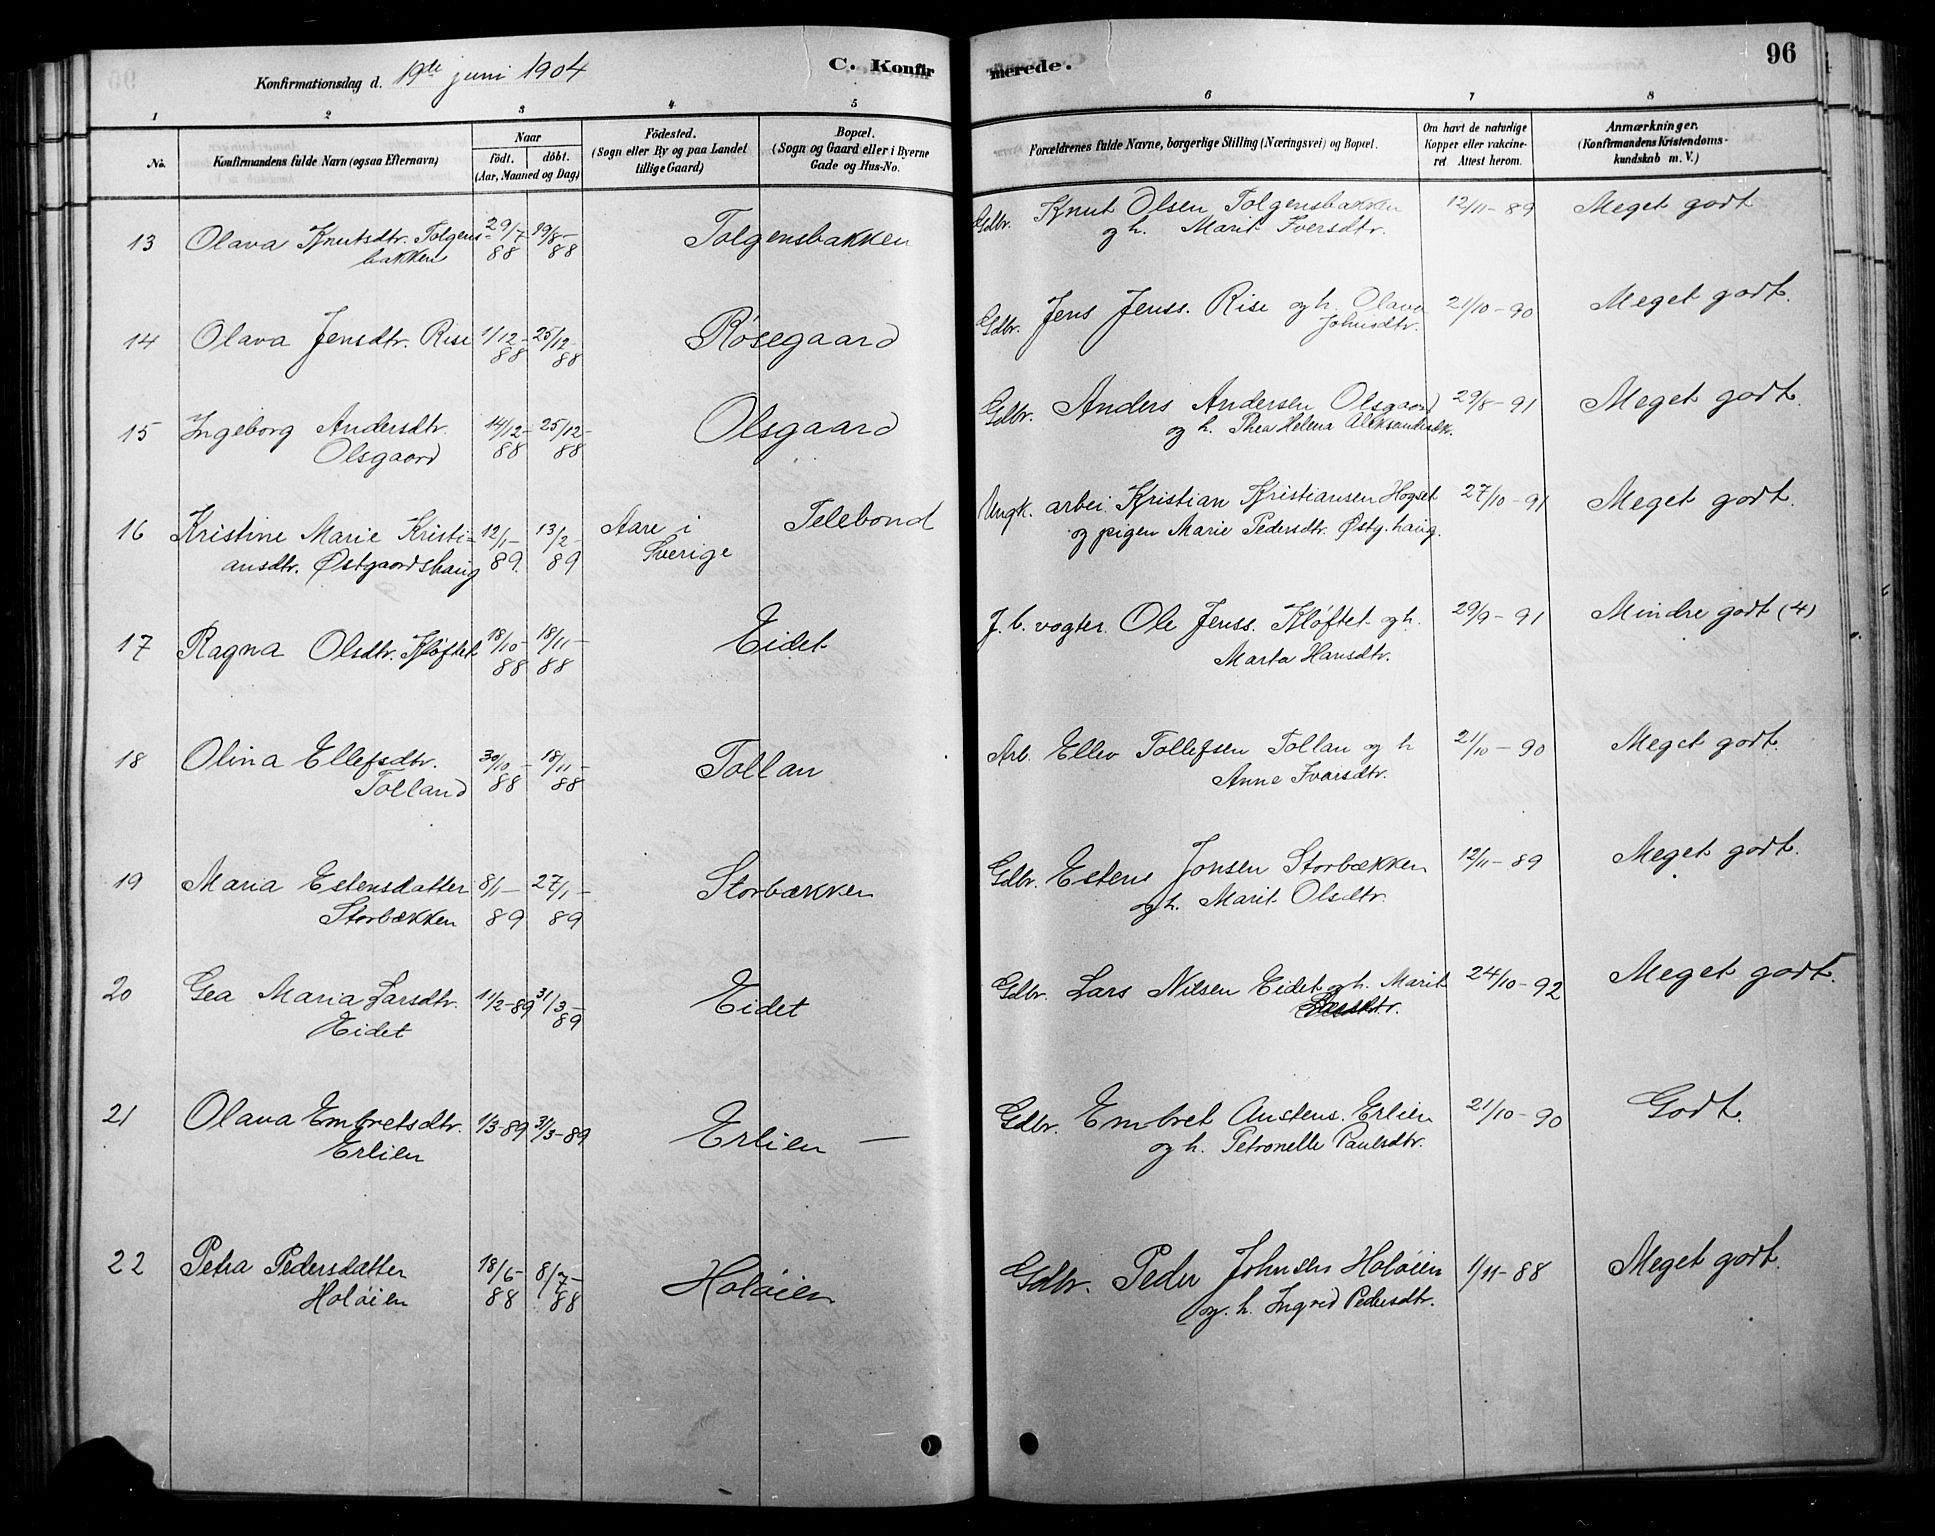 Konfirmationsdag d. 19de juni 1904
C. Konfirmerede.
96
1 2 3 4 5 6 7 8
No.
Konfirmandens fulde Navn (ogsaa Efternavn)
Naar
födt. döbt.
(Aar, Maaned og Dag)
Födested.
(Sogn eller By og paa Landet
tillige Gaard)
Bopæl.
(Sogn og Gaard eller i Byerne
Gade og Hus-No.
Forældrenes fulde Navne, borgerlige Stilling (Næringsvei) og Bopæl.
Om havt de naturlige
Kopper eller vakcine-
ret Attest herom.
Anmærkninger.
(Konfirmandens Kristendoms-
kundskab m. V.)
13 Olava Knutsdtr. Tolgens- 29/7- 19/8- Tolgensbakken Gdbr. Knut Olsen Tolgensbakken 12/11-89 Meget godt
bakken 88 88 og h. Marit Iversdtr.
14 Olava Jensdtr. Rise 1/12- 25/12- Røsegaard Gdbr. Jens Jenss. Rise og h. Olava 21/10-90 Meget godt.
88 88 Johnsdtr.
15 Ingeborg Andersdtr. 14/12- 25/12- Olsgaard Gdbr. Anders Andersen Olsgaard 29/8-91 Meget godt.
Olsgaard 88 88 og h. Thea Helena Aleksandersdtr.
16 Kristine Marie Kristi- 12/1- 13/2- Aare i Telebond Ungk. arbei. Kristian Kristiansen Hogset 27/10-91 Meget godt.
ansdtr. Østgaardshaug 89. 89 Sverige og pigen Marie Pedersdtr. Østg. haug.
17 Ragna Olsdtr. Kløftet 18/10- 18/11- Eidet J. b. vogter. Ole Jenss. Kløftet og h. 29/9-91 Mindre godt (4)
88 88 Marta Hansdtr.
18 Olina Ellefsdtr. 30/10- 18/11- Tollan Arb. Ellev Tollefsen Tollan og h 21/10-90 Meget godt.
Tolland 88 88 Anne Ivarsdtr.
19 Maria Estensdatter 8/1- 27/1- Storbækken Gdbr. Esten Jonsen Storbækken 12/11-89 Meget godt.
Storbækken 89 89 og h. Marit Olsdtr.
20 Gea Maria Larsdtr. 11/2-89 31/3-89 Eidet Gdbr. Lars Nilsen Eidet og h. Marit 24/10-92 Meget godt.
Eidet
21 Olava Embretsdtr. 1/3-89 31/3-89 Erlien — Gdbr. Embret Austens. Erlien 21/10-90 Godt.
Erlien og h. Petronelle Paulsdtr.
22 Petra Pedersdatter 18/6- 8/7- Holøien Gdbr. Peder Johnsen Holøien 1/11-88 Meget godt.
Holøien 88 88 og. h. Ingrid Pedersdtr.